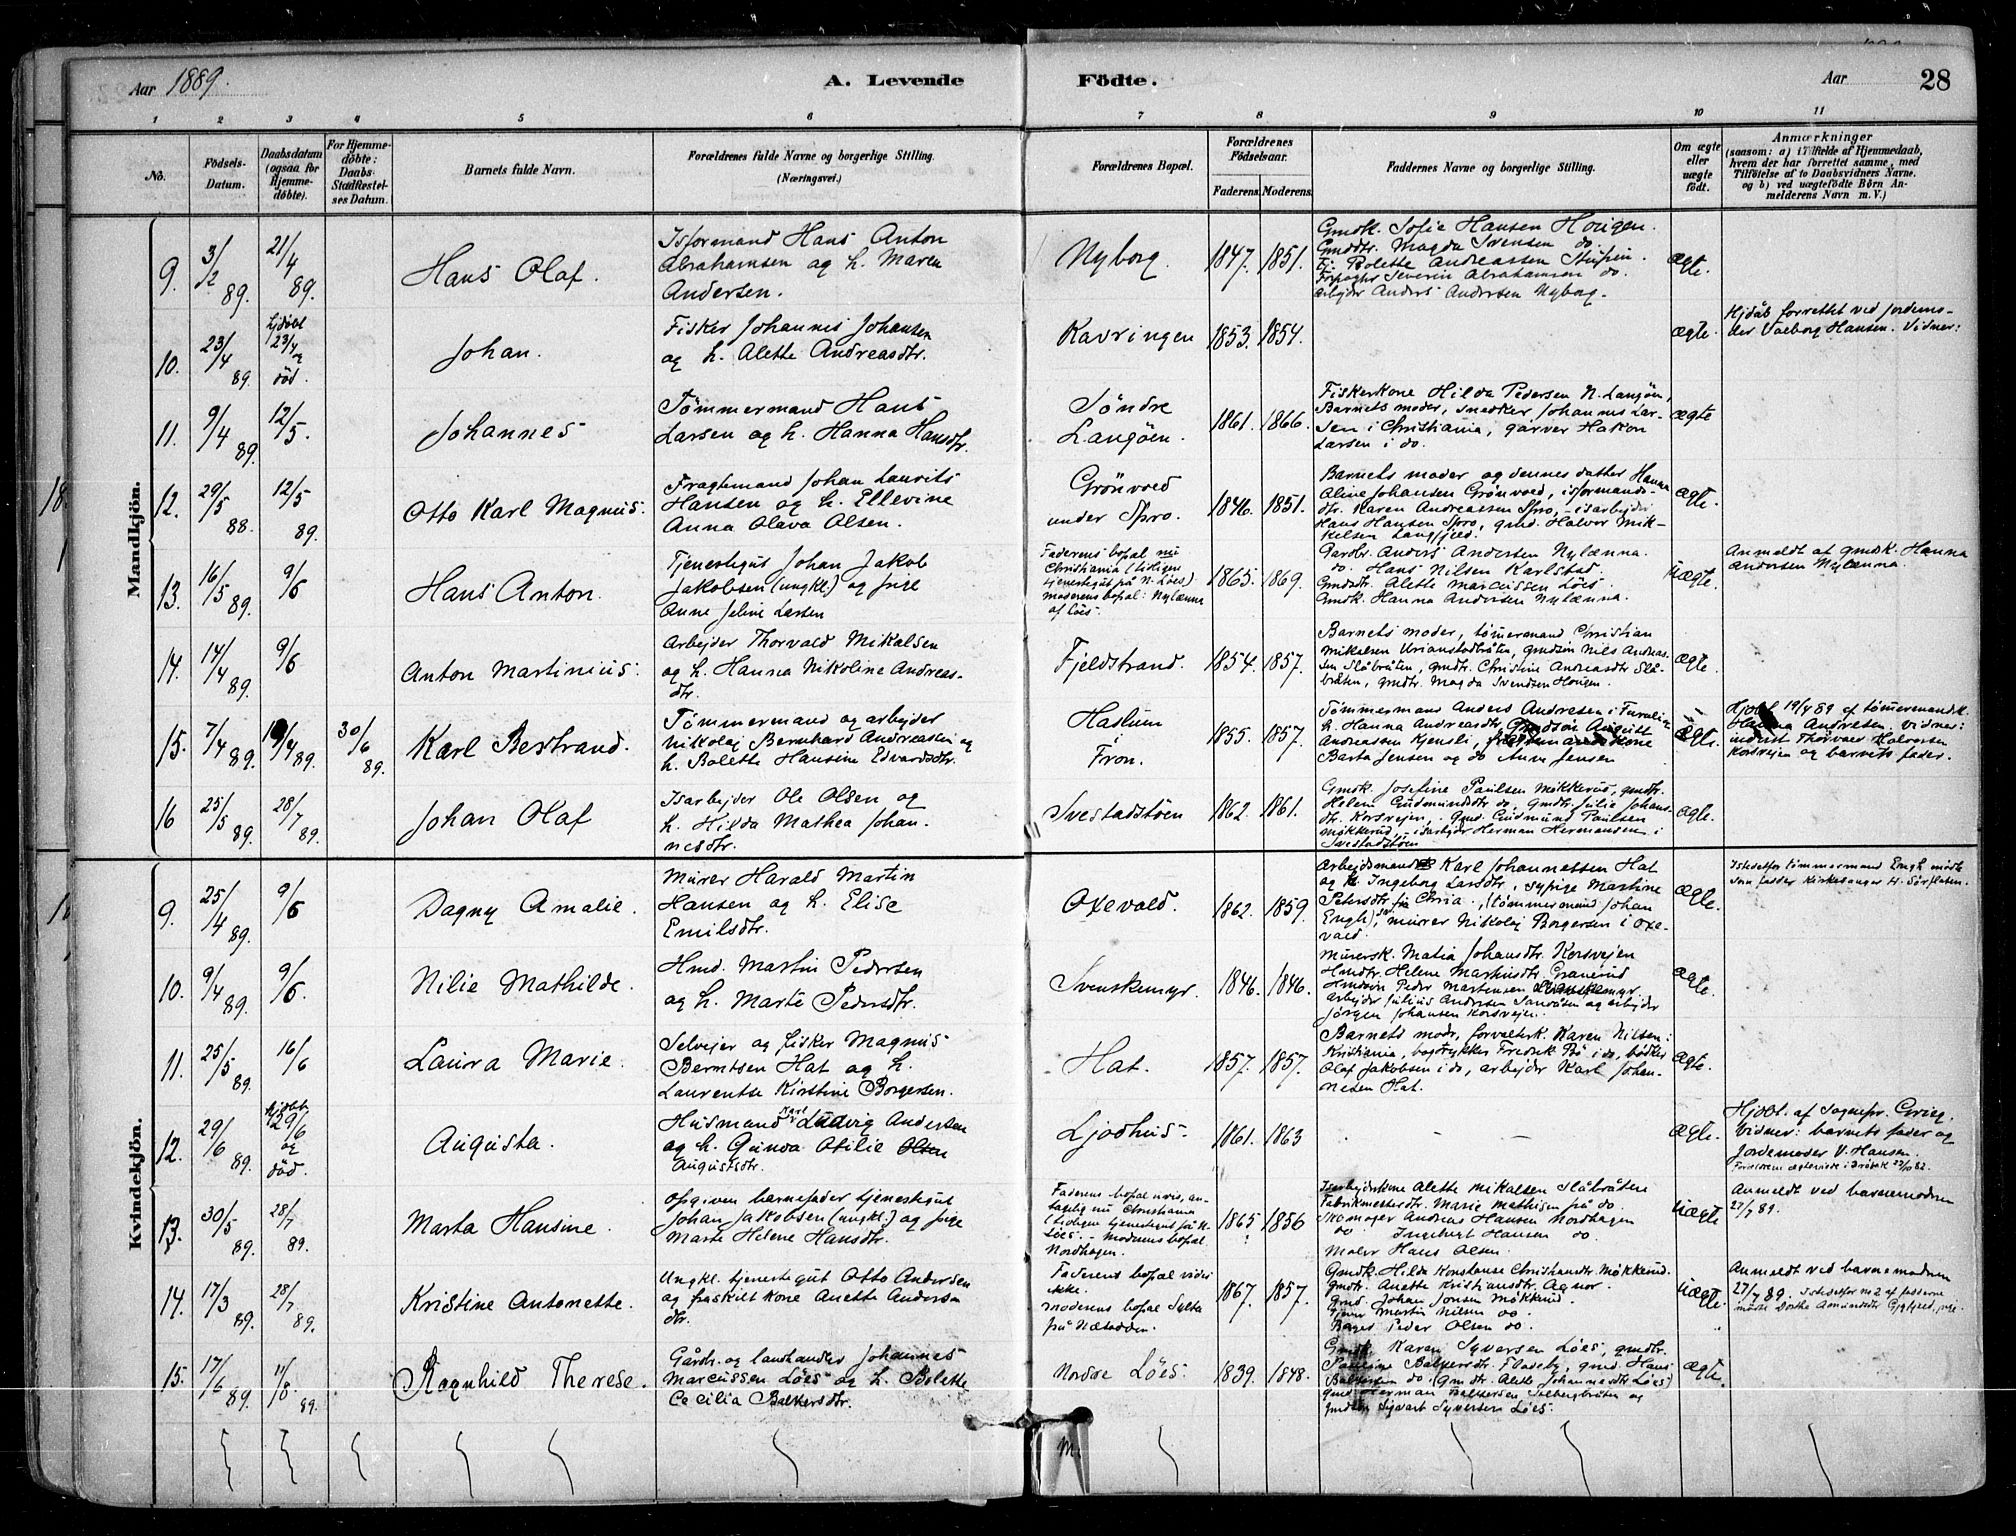 Aar 1889.
A. Levende
Födte.
Aar
28
1 2 3 4 5 6 7 8 9 10 11
No.
Födsels-Datum.
Daabsdatum (ogsaa for Hjemmedöbte).
For Hjemmedöbte: Daabs-Stadfæstelses Datum.
Barnets fulde Navn.
Forældrenes fulde Navne og borgerlige Stilling.
(Næringsvei.)
Forældrenes Bopæl.
Forældrenes Födselsaar.
Faderens. Moderens.
Faddernes Navne og borgerlige Stilling.
Om ægte eller uægte födt.
Anmærkninger
(saasom: a) i Tilfælde af Hjemmedaab, hvem der har forrettet samme, med Tilföielse af to Daabsvidners Navne. og b) ved uægtefödte Börn Anmelderens Navn m. V.)
Mandkjön.
9. 3/2 89. 21/4 89.
Hans Olaf.
Isformand Hans Anton
Abrahamsen og h. Maren
Andersen.
Nyborg. 1847. 1851.
Gmdk. Sofie Hansen Hougen.
Gmddtr. Magda Svensen do.
Pj. Bolette Andreassen
Severin Abrahamsen do.
Arbejder Anders Andersen Nyborg.
ægte.
10. 23/4 89. hjdöbt 23/4 og död.
Johan.
Fisker Johannes Johansen
og h. Alette Andreasdtr.
Kavringen 1853. 1854.
ægte.
Hjdåb forrettet ved Jordemo-
der Valborg Hansen. Vidner:
11. 9/4 89. 12/5.
Johannes
Tömmermand Hans
Larsen og h. Hanna Hansdtr.
Söndre
Langöen. 1861. 1866.
Fiskerkone Hilda Pedersen N. Langöen,
Barnets moder, snedker Johannes Lar-
sen i Christiania, garver Hakon
Larsen i do.
ægte
12. 29/5 88. 12/5 89.
Otto Karl Magnus.
Fragtemand Johan Laurits
Hansen og h. Ellevine
Anna Olava Olsen.
Grönvold
under Spro. 1846. 1851.
Barnets moder og dennes datter Hanna
Aline Johansen Grönvold, isformands-
dtr. Karen Andreassen Spro, isarbejder
Hans Hansen Spro, gmd. Halvor Mik-
kelsen Langfjeld.
ægte.
13. 16/5 89. 9/6
Hans Anton.
Tjenestegut Johan Jakob
Jakobsen (ungkl.) og pige
Anne Jeline Larsen
Faderens bopæl nu
Christiania (tidligere
tjenestegut på N. Löes)
moderens bopæl: Nylænna
af Löes. 1865. 1869.
Gårdbr. Anders Andersen Nylænna.
do. Hans Nilsen Karlstad.
Gmddtr. Alette Marcussen Löes.
Gmdk. Hanna Andersen Nylænna.
Uægte.
Anmeldt af gmdk. Hanna
Andersen Nylænna.
14. 14/4 89. 9/6
Anton Martinius.
Arbejder Thorvald Mikalsen
og h. Hanna Nikoline Andreas-
dtr.
Fjeldstrand. 1854. 1857.
Barnets moder, tömmermand Christian
Mikalsen Urianstadbråten, gmdsön Nils Andreas-
sen Slåbråten, gmdtr. Christine Andreasdtr Slå-
bråten, gmdtr. Magda Svendsen Hougen.
ægte.
15. 7/4 89. 19/4 89. 30/6 89.
Karl Bestrand.
Tömmermand og arbejder
Nikolaj Bernhard Andreassen og
h. Bolette Hansine Edvardsdtr.
Haslum
i
Fron. 1855. 1857.
Tömmermand Anders Andresen i
h. Hanna Andreasdtr, Gmdsön August
Andreassen Kjensli,
Barta Jensen og do Anne Jensen
ægte.
Hjdöbt 19/4 89 af tömmermandsk.
Hanna Andresen. Vidner:
Thorvald Halvorsen
Korsvejen og barnets fader.
16 25/5 89. 28/7 89.
Johan Olaf
Isarbejder Ole Olsen og
h. Hilda Mathea Johan-
nesdtr.
Svestadstöen 1862. 1861.
Gmdk. Josefine Paulsen Mökkerud, gmdtr.
Helene Gudmundsdtr do, Gmdtr. Julie Johans-
dtr. Korsvejen, Gmd. Gudmund Paulsen
Mökkerud, isarbejder Herman Hermansen i
Svestadstöen
ægte.
Kvindekjön.
9. 25/4 89. 9/6
Dagny Amalie.
Murer Harald Martin
Hansen og h. Elise
Emilsdtr.
Oxevold. 1862. 1859.
Arbejdsmand Karl Johannessen Hat
og h. Ingeborg Larsdtr, sypige Martine
Petersdtr fra Chria., (tömmermand Johan
Engh), murer Nikolaj Borgersen i Oxe-
vold.
ægte.
Istedetfor tömmermand Engh mödte
som fadder Kirkesanger H. Sörflaten.
10. 9/4 89. 9/6.
Nilie Mathilde.
Hmd. Martin Pedersen
og h. Marte Pedersdtr.
Svenskemyr. 1846. 1846.
Murersk. Matia Johansdtr. Korsvejen
Hmdtr. Helene Martinsdtr. Granerud
Hmdsön Peder Martinsen Svenskemyr
Arbejder Julius Andersen Sandbråten og arbejder
Jörgen Johansen Korsvejen.
ægte.
11. 25/5 89. 16/6
Laura Marie.
Selvejer og fisker Magnus
Berntsen Hat og h.
Laurentse Kirstine Borgersen.
Hat. 1857. 1857.
Barnets moder, forvalterk. Karen Nilsen:
Kristiania, bogtrykker Fredrik Bö i do, bödker
Olaf Jakobsen i do, arbejder Karl Johan-
nesen Hat.
ægte.
12. 29/6 89. hjdöbt 29/6 og död.
Augusta.
Husmand Karl Ludvig Andersen
og h. Gunda Otilie Olsen
Augustsdtr.
Ljodhus. 1861. 1863
ægte.
Hjdöbt. af Sognepr. Grieg.
Vidner: barnets fader og
Jordemoder V. Hansen.
Forældrene ægteviede i Dröbak 27/10 82.
13. 30/5 89. 28/7 89.
Marta Hansine.
Opgiven barnefader tjenestegut
Johan Jakobsen (ungkl.) og pige
Marte Helene Hansdtr.
Faderens bopæl uvis, an-
tagelig nu Christiania
(tidligere tjenestegut på N.
Löes. - Moderens bopæl
Nordhagen. 1865? 1856
Isarbejderkone Alette Mikalsen Slåbråten
Fabrikmesterdtr. Marie Mathisen på do.
Skomager Andreas Hansen Nordhagen
do Ingebret Hansen do.
Maler Hans Olsen.
Uægte
Anmeldt ved barnemoderen
27/7 89.
14. 17/3 89. 28/7 89.
Kristine Antonette.
Ungkl. tjenestegut Otto Andersen
og fraskilt kone Anette Anders-
dtr.
Faderens bopæl vides
ikke.
Moderens bopæl Sylta
på Næsodden. 1867. 1857.
Gmdk. Hilda Konstanse Christiansdtr. Mökkerud.
Gmdtr. Anette Kristiansdtr. Agnor.
Gmd. Johan Jonsen Mökkerud.
Martin Nilsen do.
Peder Olsen do.
Uægte.
Anmeldt ved barnemoderen
27/7 89. Istedetfor no 2 af fadderne
mödte Dorthe Amundsdtr
15. 17/6 89. 11/8. 89.
Ragnhild Therese.
Gårdbr. og landhandler Johannes
Marcussen Löes og h. Bolette
Cecilia Balkersdtr.
Nordre Löes. 1839. 1848.
Gmdk. Karen Syversen Löes, gmdtr.
Pauline Balkersdtr. Fladeby, gmd. Hans
Balkersen do (Gmdtr. Alette Johannesdtr Löes)
gmd. Herman Balkersen Solbergbråten og
gmdsön Sigvart Syversen Löes.
ægte.